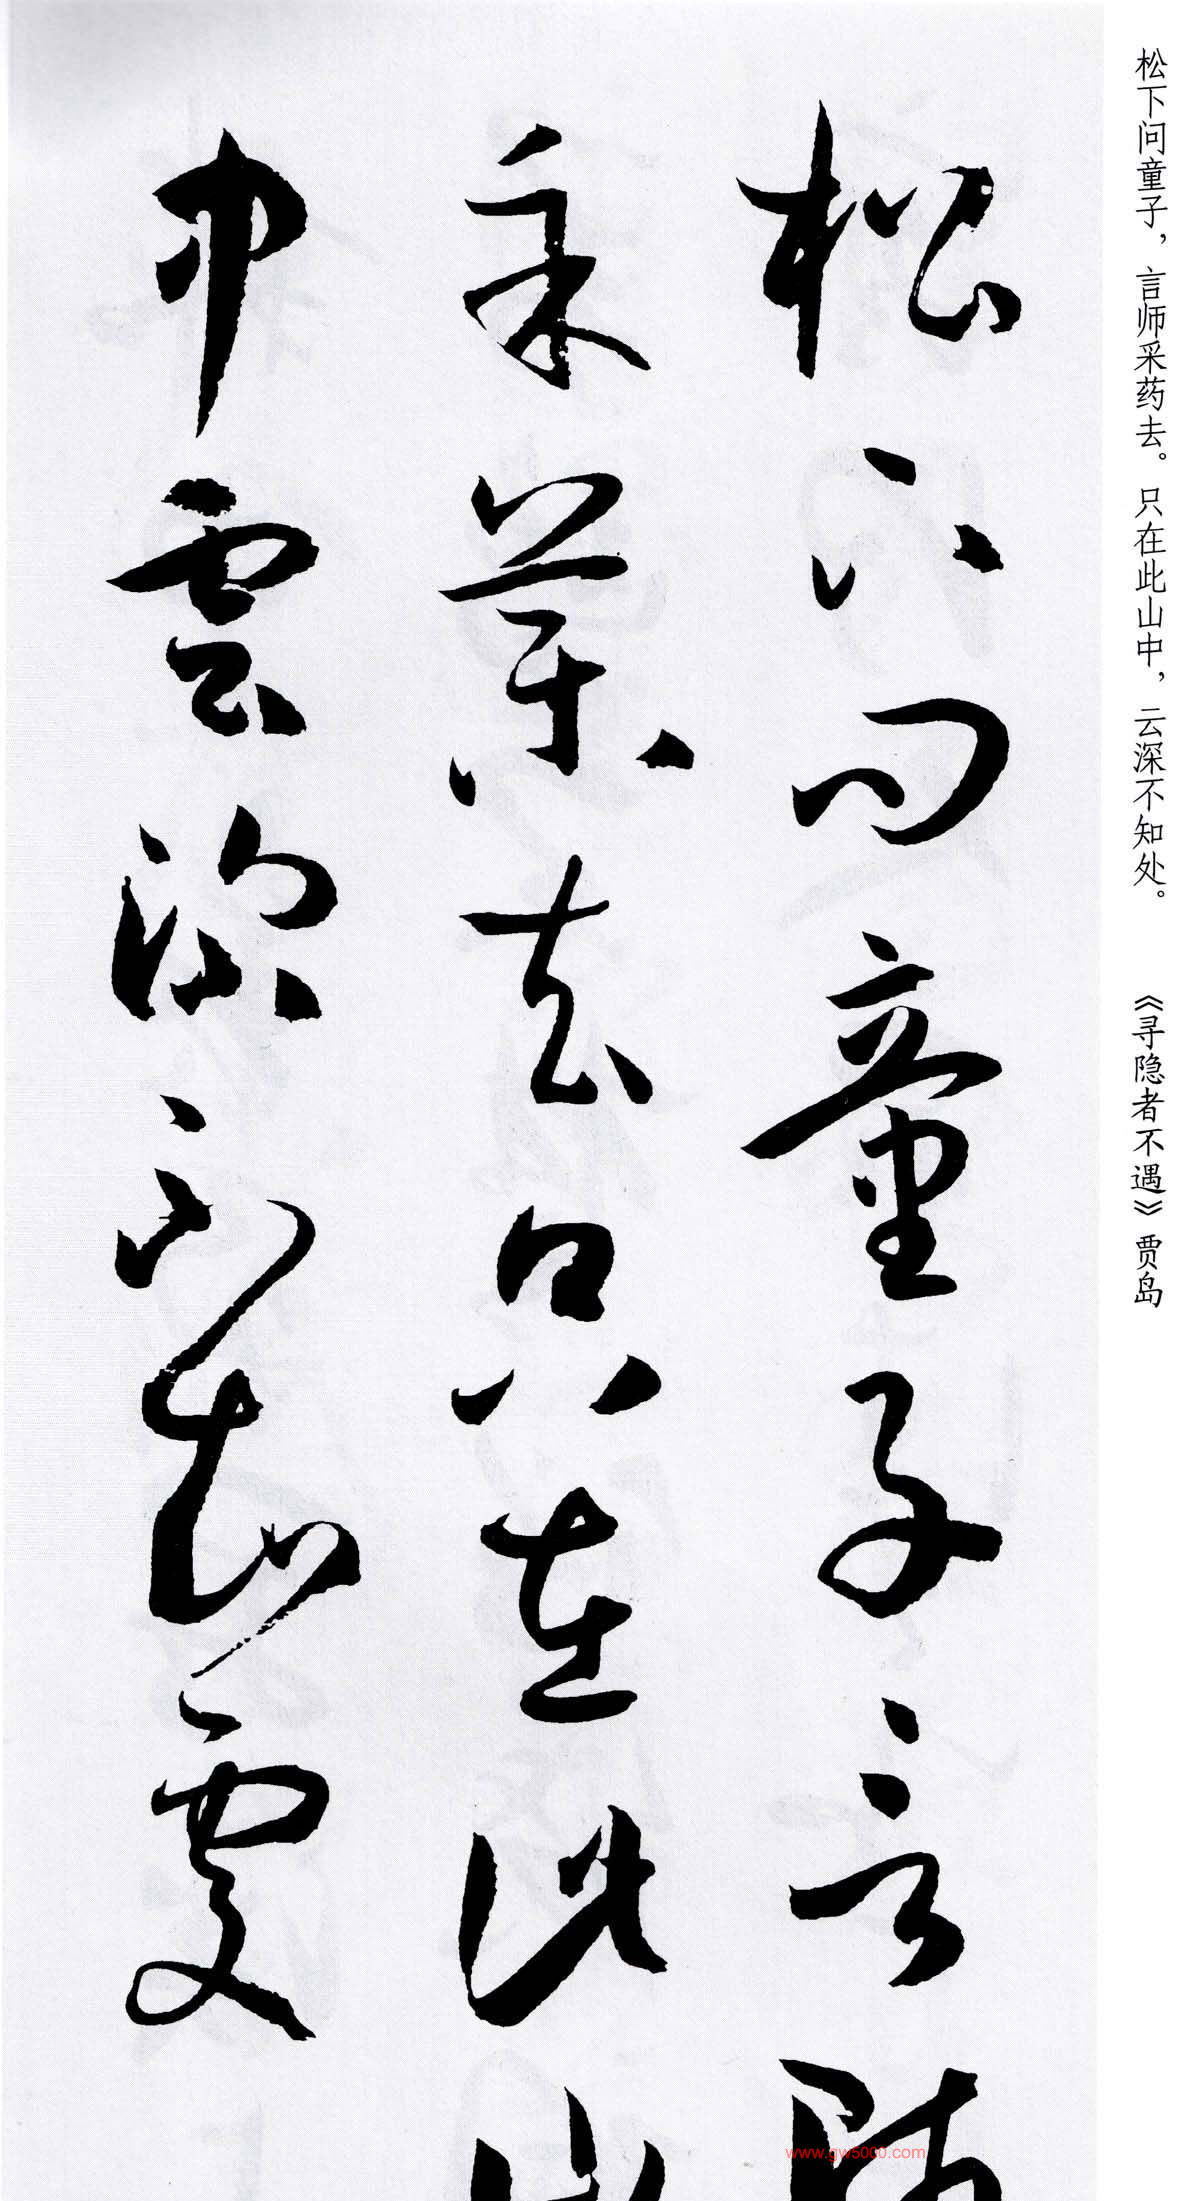 松下问童子，言师采药去。只在此山中，云深不知处。 《寻隐者不遇》贾岛
松下问童子言師
采药去只在此山
中雲深不知處
www.gw5000.com